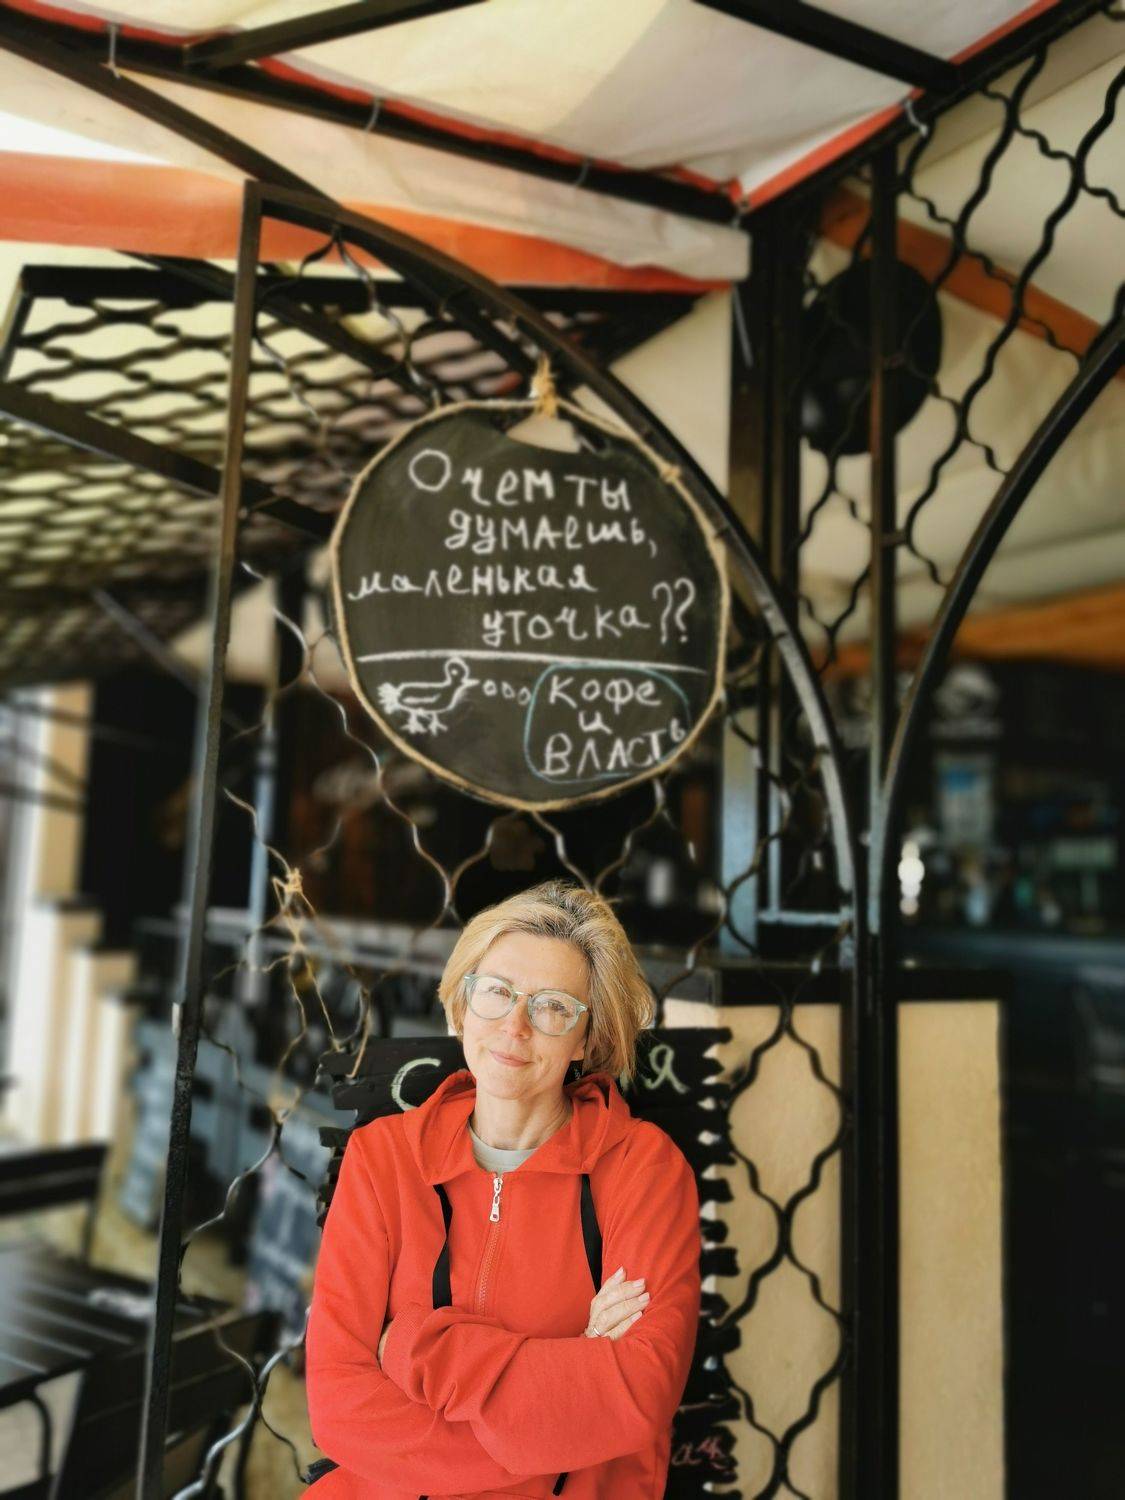 О чем ты
думаешь,
маленькая
уточка??
кофе
и
власть